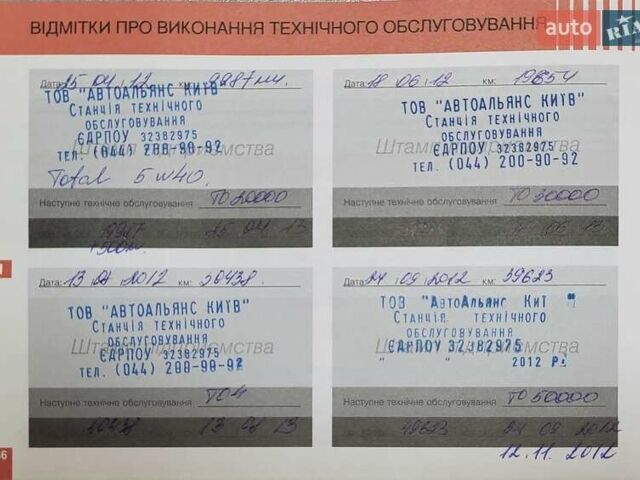 ВІДМІТКИ ПРО ВИКОНАННЯ ТЕХНІЧНОГО ОБСЛУГОВУВАННЯ
auto RIA
Дата: 15 04 12 км:
ТОВ "АВТОАЛЬЯНС КИЇВ"
СТАНЦІЯ ТЕХНІЧНОГО
ОБСЛУГОВУВАННЯ
ЄДРПОУ 32382975
ТЕЛ. (044) 200-90-92
Штамп підприємства
Total 5W40.
Наступне технічне обслуговування ТО 20000
25 04 13
Дата: 18 06 12 км: 19654
ТОВ "АВТОАЛЬЯНС КИЇВ"
СТАНЦІЯ ТЕХНІЧНОГО
ОБСЛУГОВУВАННЯ
ЄДРПОУ 32382975
ТЕЛ. (044) 200-90-92
Штамп підприємства
Наступне технічне обслуговування ТО 30000
06 13
Дата: 13 2012 км: 30438
ТОВ "АВТОАЛЬЯНС КИЇВ"
СТАНЦІЯ ТЕХНІЧНОГО
ОБСЛУГОВУВАННЯ
ЄДРПОУ 32382975
ТЕЛ. (044) 200-90-92
Штамп підприємства
Наступне технічне обслуговування ТО4
13 13
Дата: 24 09 2012 км: 39623
ТОВ "АвтоАльянс Киї "
СТАНЦІЯ ТЕХНІЧНОГО
ОБСЛУГОВУВАННЯ
ЄДРПОУ 32382975
" " 2012 Р.
Штамп підприємства
Наступне технічне обслуговування ТО 50000
49623 24 09 2012
12.11.2012